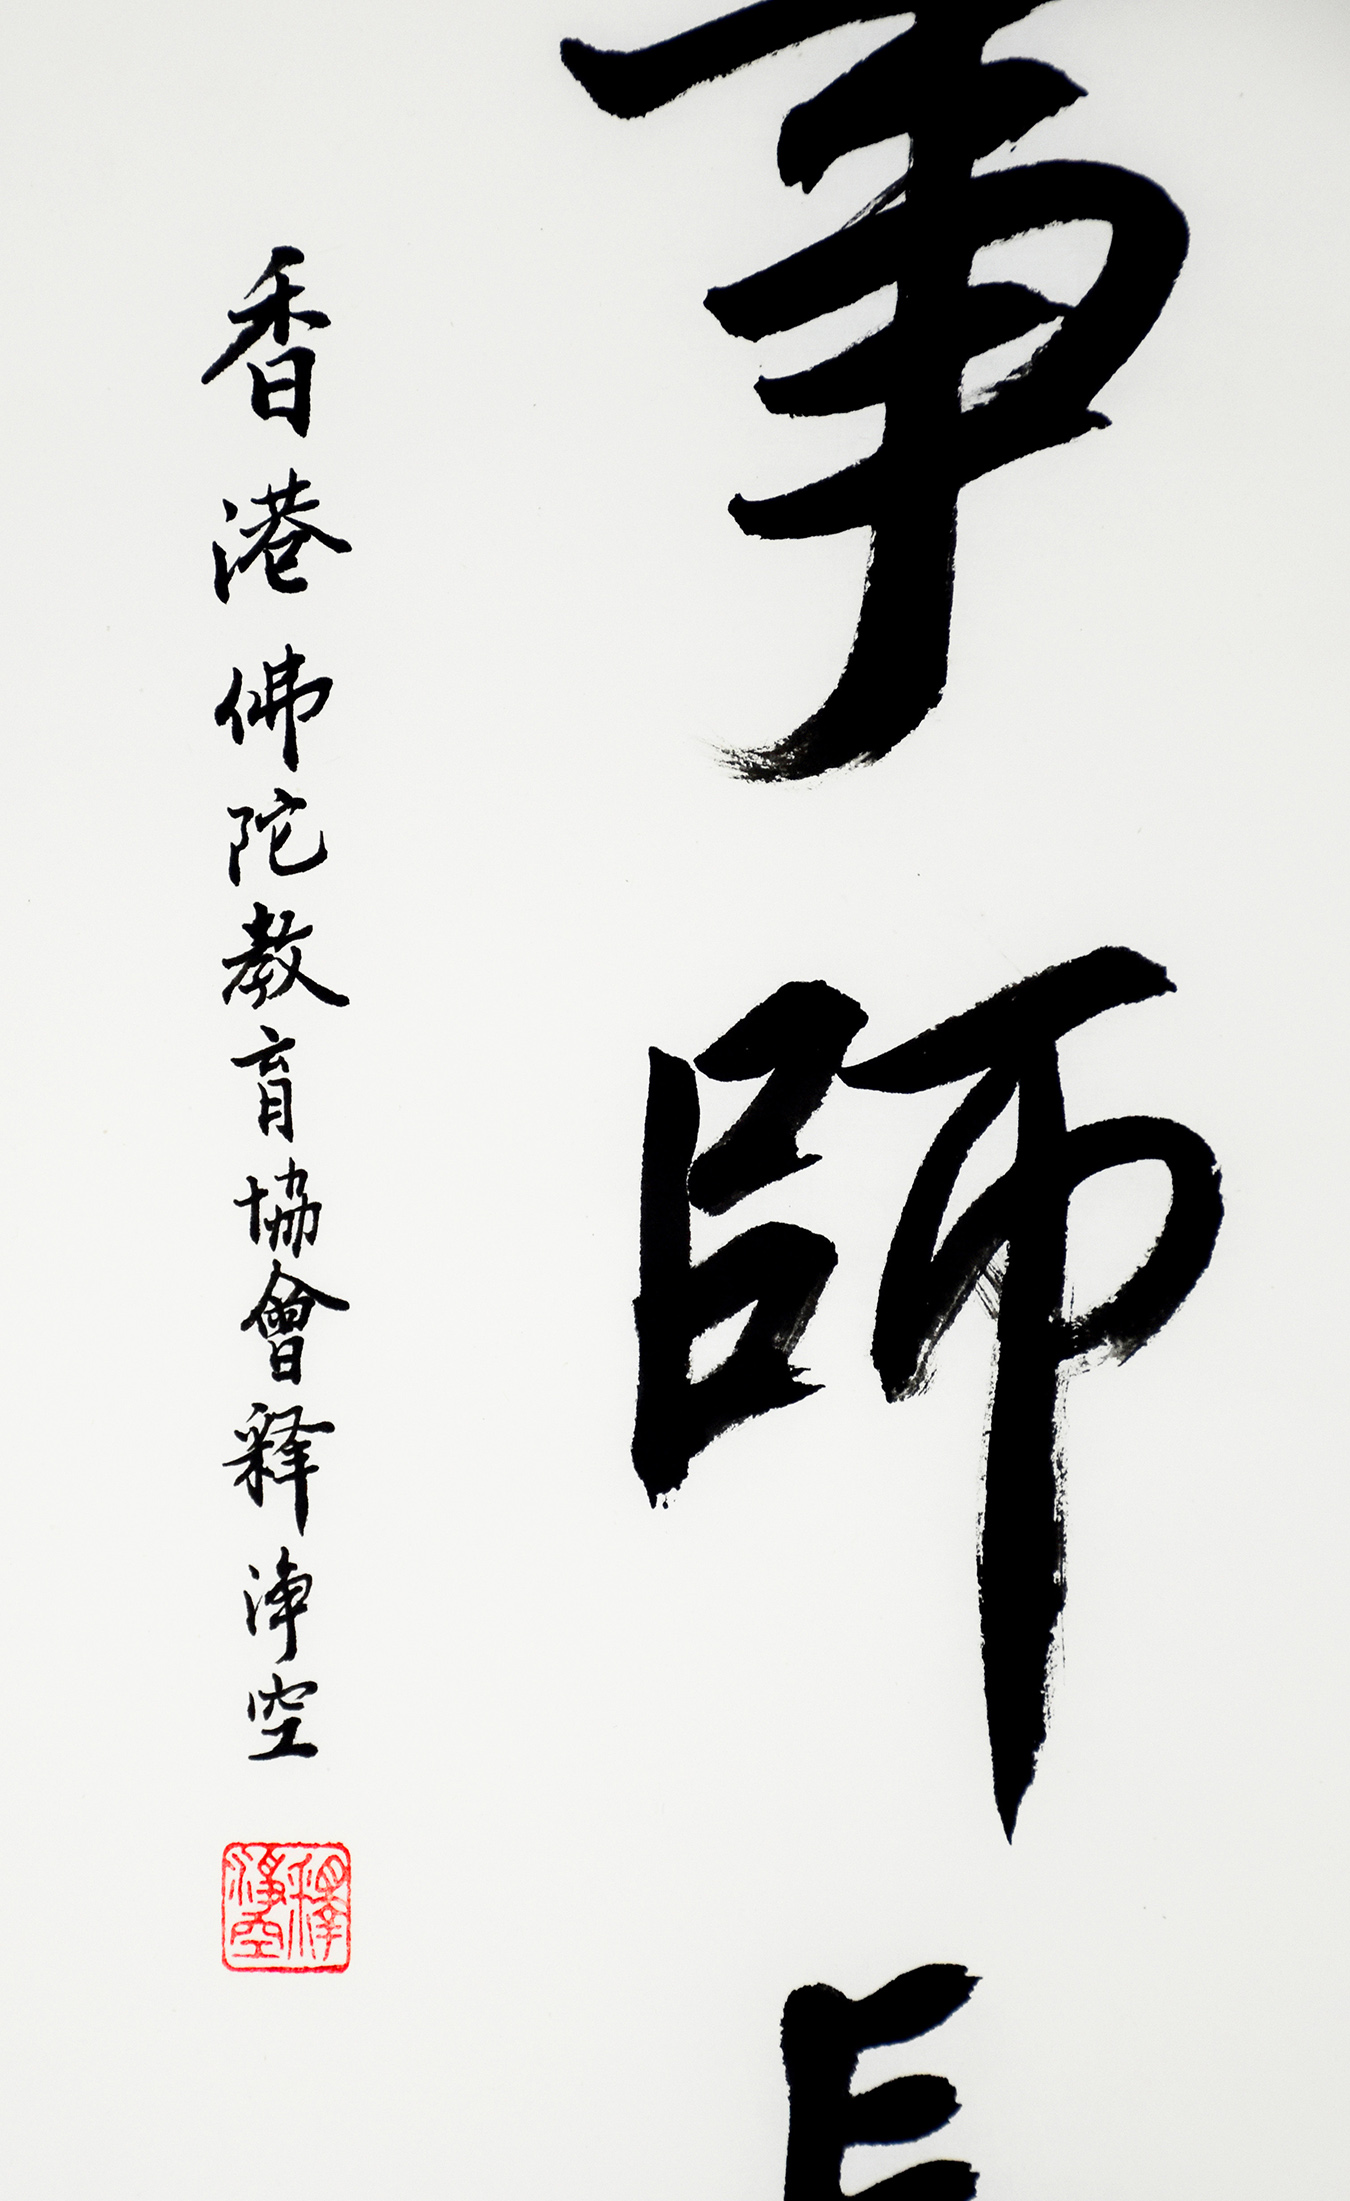 事師長
香港佛陀教育協會释淨空
釋淨空